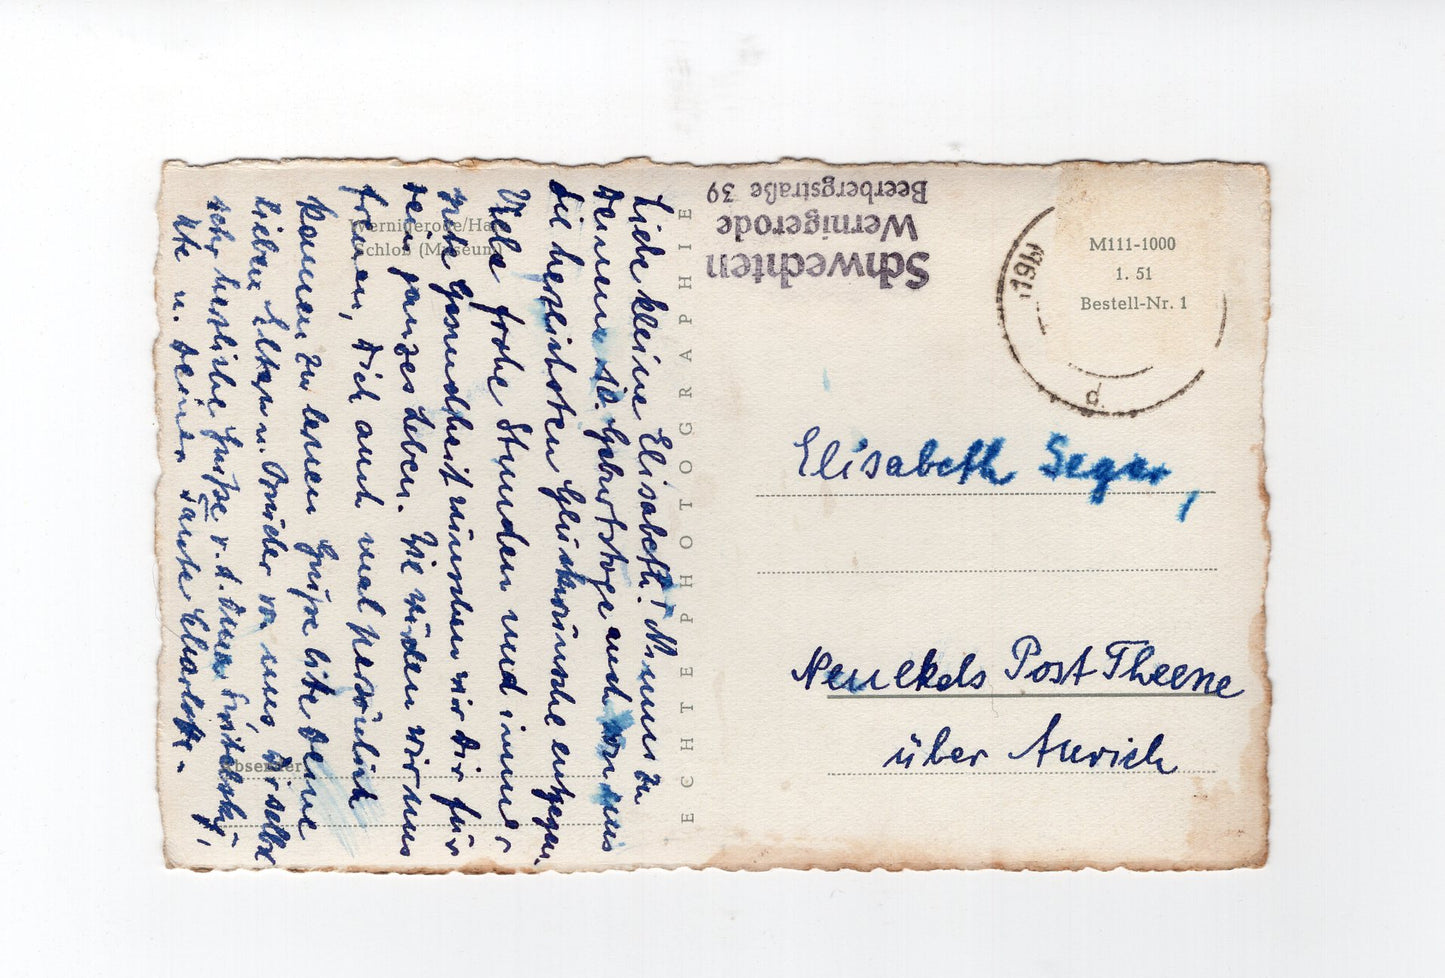 Liebe kleine Elisabeth! Nimm zu
Deinem 10. Geburtstage auch von uns
die herzlichsten Glückwünsche entgegen.
Viele frohe Stunden und immer
gute Gesundheit wünschen wir Dir für
Dein ganzes Leben. Wie würden wir uns
freuen, Dich auch mal persönlich
kennen zu lernen Grüße bitte Deine
lieben Eltern u. Brüder von uns, Dir selbst
sehr herzliche Grüße v. d. Oma
Ute u. Deiner Tante Charlotte.
Wernigerode/Harz
Schloß (Museum)
Absender:
ECHTE PHOTOGRAPHIE
Schwechten
Wernigerode
Beerbergstraße 39
M111-1000
1. 51
Bestell-Nr. 1
d
Elisabeth Seger,
Neuekels Post Theene
über Aurich